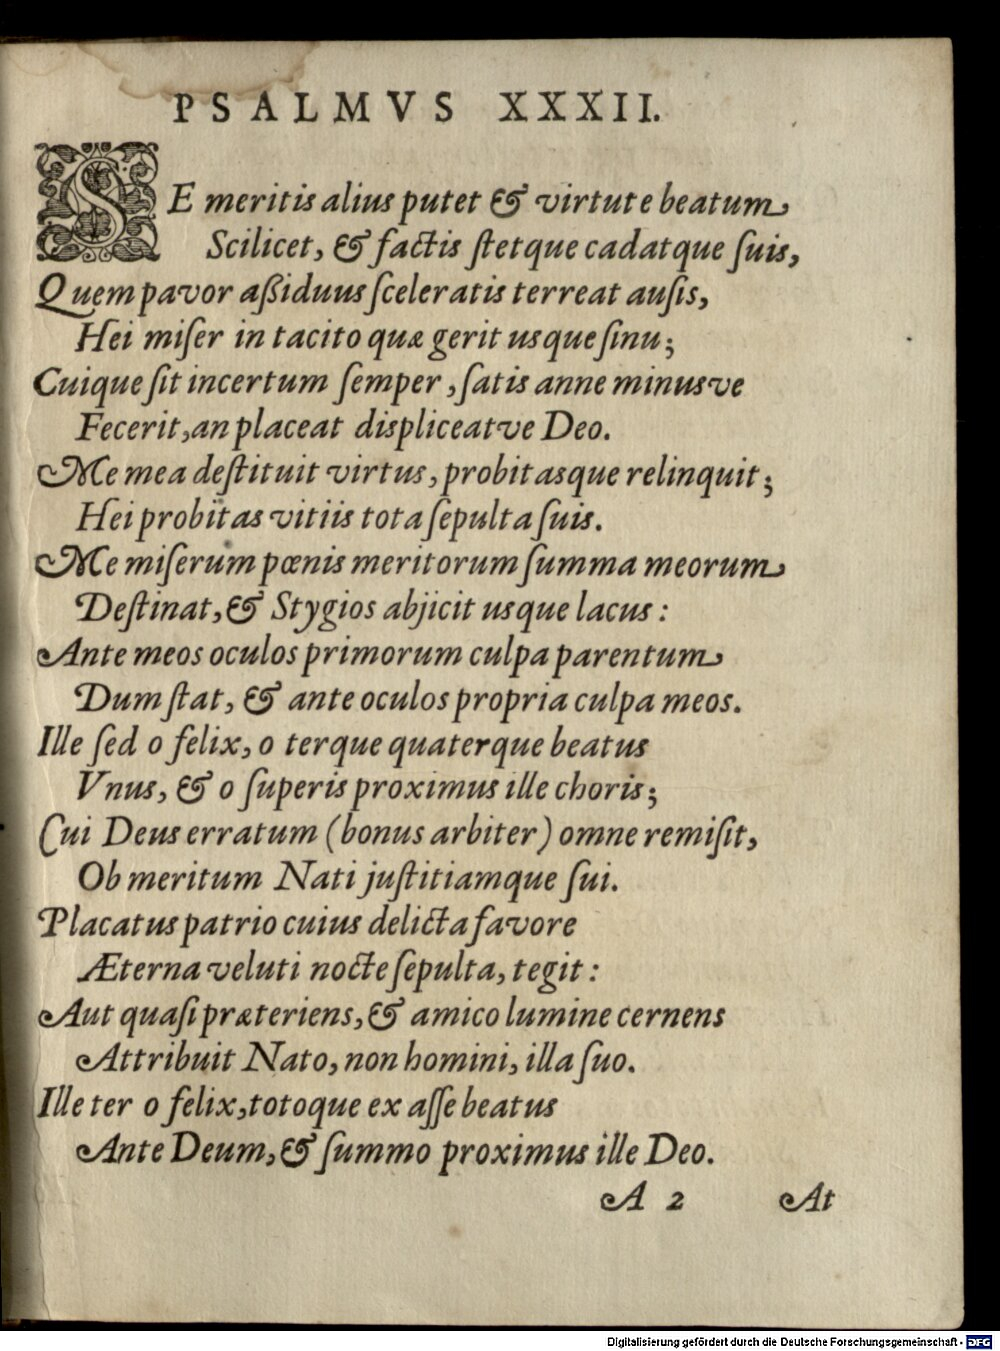 PSALMVS XXXII.
SE meritis alius putet & virtute beatum
Scilicet, & factis stetque cadatque suis,
Quem pavor aßiduus sceleratis terreat ausis,
Hei miser in tacito quæ gerit usque sinu;
Cuique sit incertum semper, satis anne minusve
Fecerit, an placeat displiceatve Deo.
Me mea destituit virtus, probitasque relinquit;
Hei probitas vitiis tota sepulta suis.
Me miserum pœnis meritorum summa meorum
Destinat, & Stygios abjicit usque lacus:
Ante meos oculos primorum culpa parentum
Dum stat, & ante oculos propria culpa meos.
Ille sed o felix, o terque quaterque beatus
Vnus, & o superis proximus ille choris;
Cui Deus erratum (bonus arbiter) omne remisit,
Ob meritum Nati justitiamque sui.
Placatus patrio cuius delicta favore
Æterna veluti nocte sepulta, tegit:
Aut quasi præteriens, & amico lumine cernens
Attribuit Nato, non homini, illa suo.
Ille ter o felix, totoque ex asse beatus
Ante Deum, & summo proximus ille Deo.
A 2 At
Digitalisierung gefördert durch die Deutsche Forschungsgemeinschaft - DFG